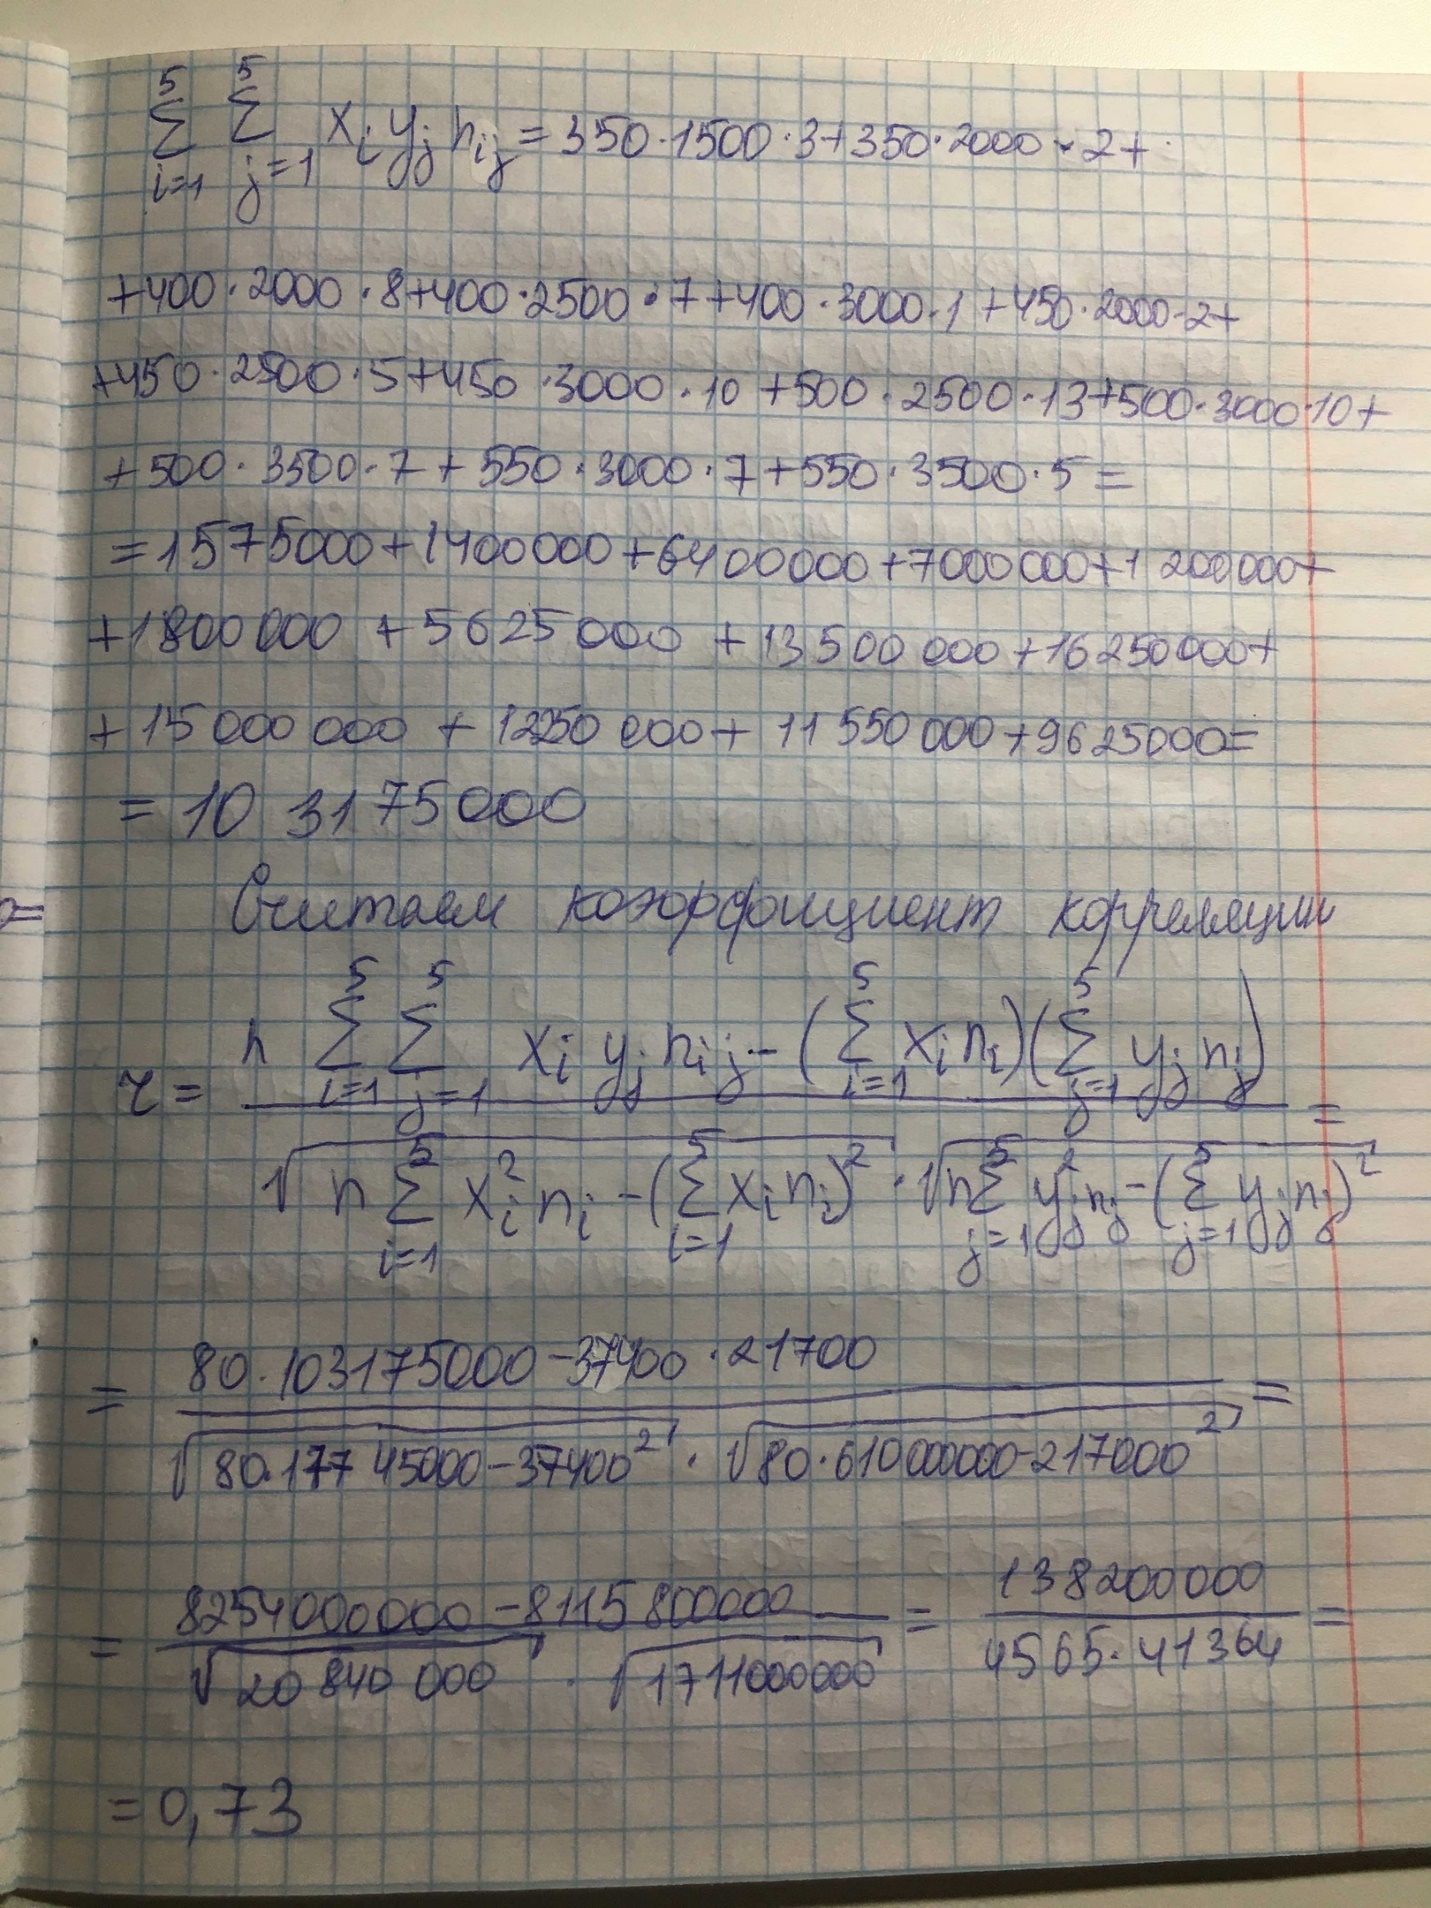 5 5
∑ ∑ xᵢ yⱼ nᵢⱼ = 350·1500·3+350·2000·2+
i=1 j=1
+400·2000·8+400·2500·7+400·3000·1+450·2000·2+
+450·2500·5+450·3000·10+500·2500·13+500·3000·10+
+500·3500·7+550·3000·7+550·3500·5=
=1575000+1400000+6400000+7000000+1200000+
+1800000+5625000+13500000+16250000+
+15000000+12250000+11550000+9625000=
=10 3175000
Считаем коэффициент корреляции
5 5 5 5
n ∑ ∑ xᵢ yⱼ nᵢⱼ − (∑ xᵢ nᵢ)(∑ yⱼ nⱼ)
i=1 j=1 i=1 j=1
r = =
5 5 5 5
√n ∑ xᵢ² nᵢ − (∑ xᵢ nᵢ)² · √n ∑ yⱼ² nⱼ − (∑ yⱼ nⱼ)²
i=1 i=1 j=1 j=1
80·103175000−37400·21700
= =
√80·17745000−37400² · √80·610000000−217000²
8254000000−8115800000 138200000
= = =
√20840000 · √1711000000 4565·41364
=0,73